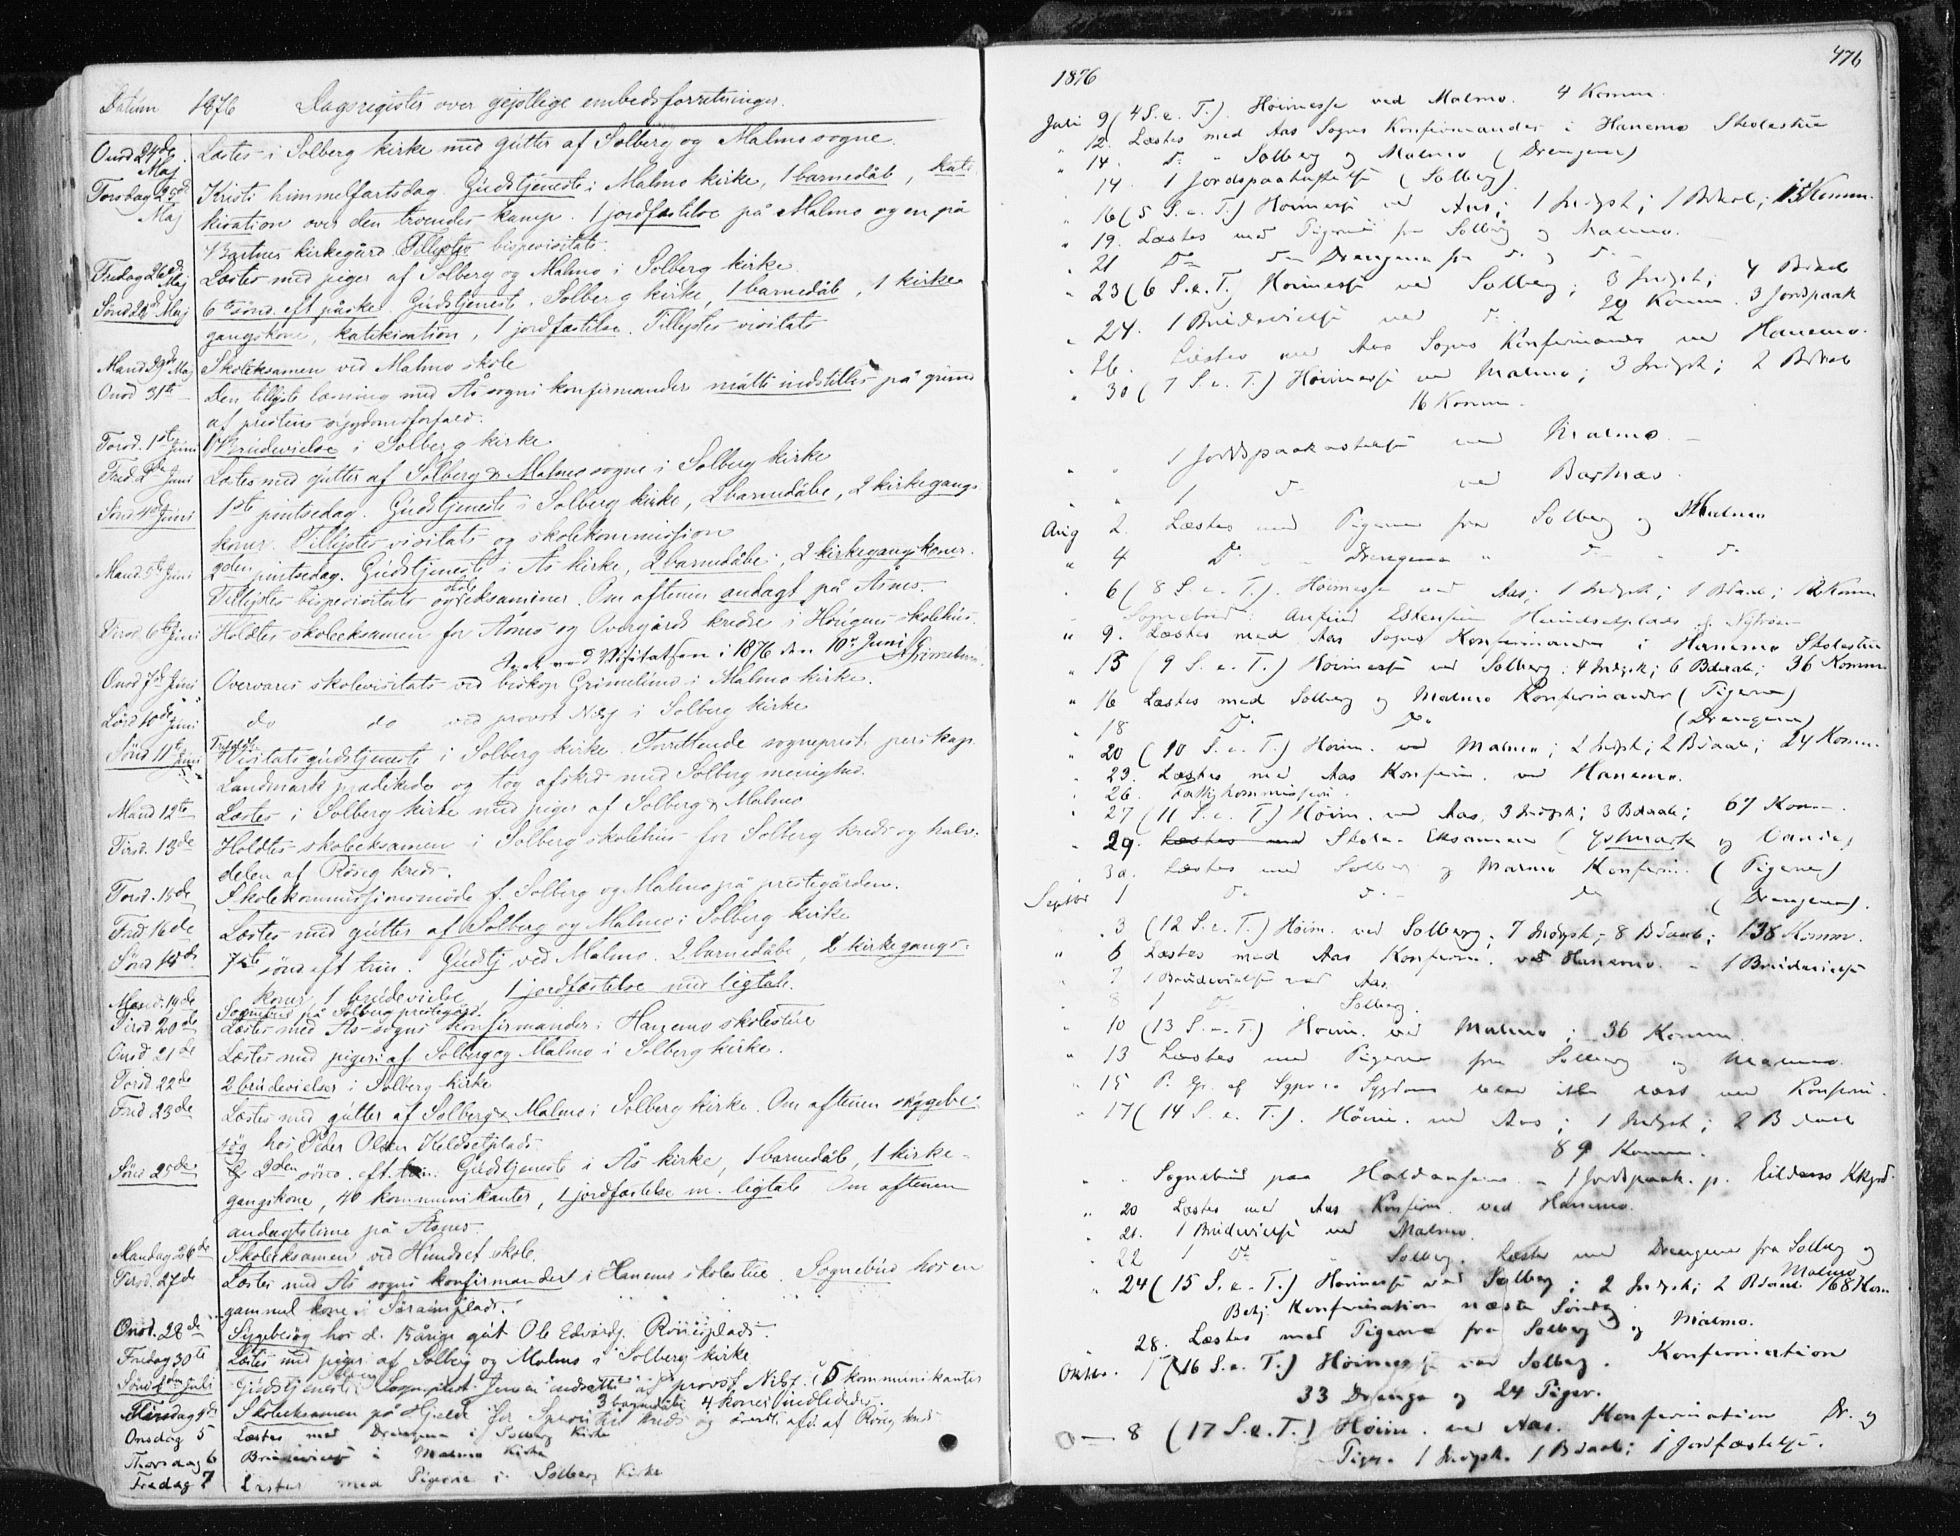 Datum 1876 Dagsregister over gejstlige embedsforretninger.
Onsd 24de Maj Læstes i Solberg kirke med gutter af Solberg og Malmo sogne.
Torsdag 25de Maj Kristi himmelfartsdag. Gudstjeneste i Malmo kirke, 1 barnedåb, kate
kisation over den troendes kamp. 1 jordfæstelse på Malmo og en på
Bartnes kirkegård. Tillystes bispevisitats.
Fredag 26de Maj Læstes med piger af Solberg og Malmo i Solberg kirke
Sønd 28de Maj 6te sønd. eft påske. Gudstjeneste. Solberg kirke, 1 barnedåb, 1 kirke
gangskone, katekisation, 1 jordfæstelse. Tillystes visitats
Mand 29de Maj Skoleksamen ved Malmo skole
Onsd 31te Den tillyste læsning med Ås sogns konfirmander måtte indstilles på grund
af prestens sygdomsforfald.
Torsd. 1ste Juni 1 Brudevielse i Solberg kirke
Fred. 2de Juni Læstes med gutter af Solberg & Malmo sogne i Solberg kirke
Sønd 4de Juni 1ste pintsedag. Gudstjeneste i Solberg kirke, 2 barnedåbe, 2 kirkegangs
koner. Tillystes visitats og skolekommission
Mand. 5te Juni 2den pintsedag. Gudstjeneste i Ås kirke, 2 barnedåbe, 2 kirkegangskoner.
Tillystes bispevisitats og skoleeksaminer. Om aftenen andagt på Åsnes.
Tirsd 6te Juni Holdtes skoleeksamen for Åsnes og Overgårds kredse i Haugans skolehus.
Seet ved Visitatsen i 1876 den 10de Juni Grimelund.
Onsd 7de Juni Overvares skolevisitats ved biskop Grimelund i Malmo kirke.
Lørd 10de Juni do do ved provst Nilsj i Solberg kirke
Sønd 11te Juni Visitatsgudstjeneste i Solberg kirke. Forrettende sogneprest pers kap.
Landmark prædikede og tog afsked med Solberg menighed.
Mand 12te Læstes i Solberg kirke med piger af Solberg & Malmo
Tirsd. 13de Holdtes skoleeksamen i Solberg skolehus for Solberg kreds og halv-
delen af Røseg kreds.
Torsd. 15de Skolekommissionsmøde f. Solberg og Malmo på prestegården.
Fred 16de Læstes med gutter af Solberg og Malmo i Solberg kirke
Sønd 18de sønd eft trin. Gudstj ved Malmo. 2 barnedåbe, 2 kirkegangs-
koner, 1 brudevielse 1 jordfæstelse med ligtale.
Mand. 19de Sognebud på Solberg prestegård.
Tirsd 20de Læstes med Ås-sogns konfirmander i Hanemo skolestue
Onsd 21de Læstes med piger af Solberg og Malmo i Solberg kirke.
Torsd 22de 2 brudevielser i Solberg kirke
Fred 23de Læstes med gutter af Solberg & Malmo i Solberg kirke. Om aftenen sygebe
søg hos Peder Olsen Keldsetplads.
Sønd 25de 2den sønd. eft. trin. Gudstjeneste i Ås kirke, 1 barnedåb, 1 kirke-
gangskone, 40 kommunikanter, 1 jordfæstelse m. ligtale Om aftenen
andagtstime på Åsnes
Mandag 26de Skoleeksamen ved Hundset skole.
Tirsd. 27de Læstes med Ås sogns konfirmander i Hanemo skolestue. Sognebud hos en
gammel kone i plads.
Onsd. 28de Sygebesøg hos d. årige gut Ole Edvards. plads.
Fredag 30te Læstes med piger af Solberg og Malmo i Solberg kirke
Sønd 2den Juli Gudstjeneste. Sogneprest Jensen indsattes af provst Nilsj. 5 kommunikanter
3 barnedåbe 4 koner indlededes
Tirsdag 4de Skoleeksamen på Hjelde for kreds og af Røseg kreds
Onsdag 5 Læstes med Drengene i Solberg Kirke
Thorsdag 6 Brudevielse i Malmo Kirke
Fredag 7 Læstes med Pigerne i Solberg Kirke
476
1876
Juli 9 (4 S. e. T.). Høimesse ved Malmo. 4 Komm.
" 12. Læstes med Aas Sogns Konfirmander i Hanemo Skolestue
" 14. D. " Solberg og Malmo (Drengene)
14. 1 Jordspaakastelse (Solberg).
" 16 (5 S. e. T.) Høimesse ved Aas; 1 Indgsk; 1 Bdaab; 13 Komm.
" 19. Læstes med Pigerne fra Solberg og Malmo.
" 21 Do Do Drengene fra D. og D.
" 23 (6 S. e. T.) Høimesse ved Solberg; 3 Indgsk; 4 Bdaab
29 Komm. 3 Jordspaak
" 24. 1 Brudevielse ved D.
" 26. Læstes med Aas Sogns Konfirmander ved Hanemo.
" 30 (7 S. e. T.) Høimesse ved Malmo; 3 Indgsk; 2 Bdaab
16 Komm.
" " 1 Jordspaakastelse ved Malmo.
" 1 D. ved Bartnæs.
Aug 2. Læstes med Pigerne fra Solberg og Malmo
" 4 D. Drengene " D. " D.
6 (8 S. e. T.). Høimesse ved Aas; 1 Indgsk; 1 Bdaab; 12 Komm
Sognebud: Arnfind Estensen Hundsetplads
" 9. Læstes med Aas Sogns Konfirmander i Hanemo Skolestue
" 13 (9 S. e. T.) Høimesse ved Solberg. 4 Indgsk; 6 Bdaab; 36 Komm
" 16 Læstes med Solberg og Malmo Konfirmander (Pigerne)
" 18 D. D. (Drengene)
" 20 (10 S. e. T.) Høim. ved Malmo; 2 Indgsk; 2 Bdaab; 24 Komm.
" 23. Læstes med Aas Konfirm. ved Hanemo.
" 26. Fattigkommission.
" 27 (11 S. e. T.) Høim. ved Aas, 3 Indgsk; 3 Bdaab; 67 Komm.
" 29. Læstes med Skole-Eksamen ( og
" 30. Læstes med Solberg og Malmo Konfirm. (Pigerne)
Septbr 1 D. D. D. (Drengene).
" 3 (12 S. e. T.) Høim. ved Solberg; 7 Indgsk; 8 Bdaab; 138 Komm.
" 6 Læstes med Aas Konfirm. ved Hanemo. - 1 Brudevielse
" 7 1 Brudevielse ved Aas.
8 1 D. Solberg.
" 10 (13 S. e. T.) Høim. ved Malmo; 36 Komm.
" 13 Læstes med Pigerne fra Solberg og Malmo.
" 15 P. Gr. af Sygdom blev ikke læst med Konfirm.
" 17 (14 S. e. T.). Høim. ved Aas; 1 Indgsk; 2 Bdaab
89 Komm.
" " Sognebud paa Haldansem. - 1 Jordspaak. p. Eldens Kkgrd.
" 20 Læstes med Aas Konfirm. ved Hanemo.
" 21. 1 Brudevielse ved Malmo.
22 1 D. Solberg. Læstes med Drengene fra Solberg og
Malmo
" 24 (15 S. e. T.) Høimesse ved Solberg; 2 Indgsk; 2 Bdaab 168 Kom
Bekj. Konfirmation næste Søndag
28. Læstes med Pigerne fra Solberg og Malmo.
Oktbr. 1 (16 S. e. T.) Høimesse ved Solberg. Konfirmation
33 Drenge og 24 Piger.
8 (17 S. e. T.) Høim. ved Aas. Konfirmation Dr. og
Piger. 1 Indgsk. 1 Bdaab; 1 Jordfæstelse.